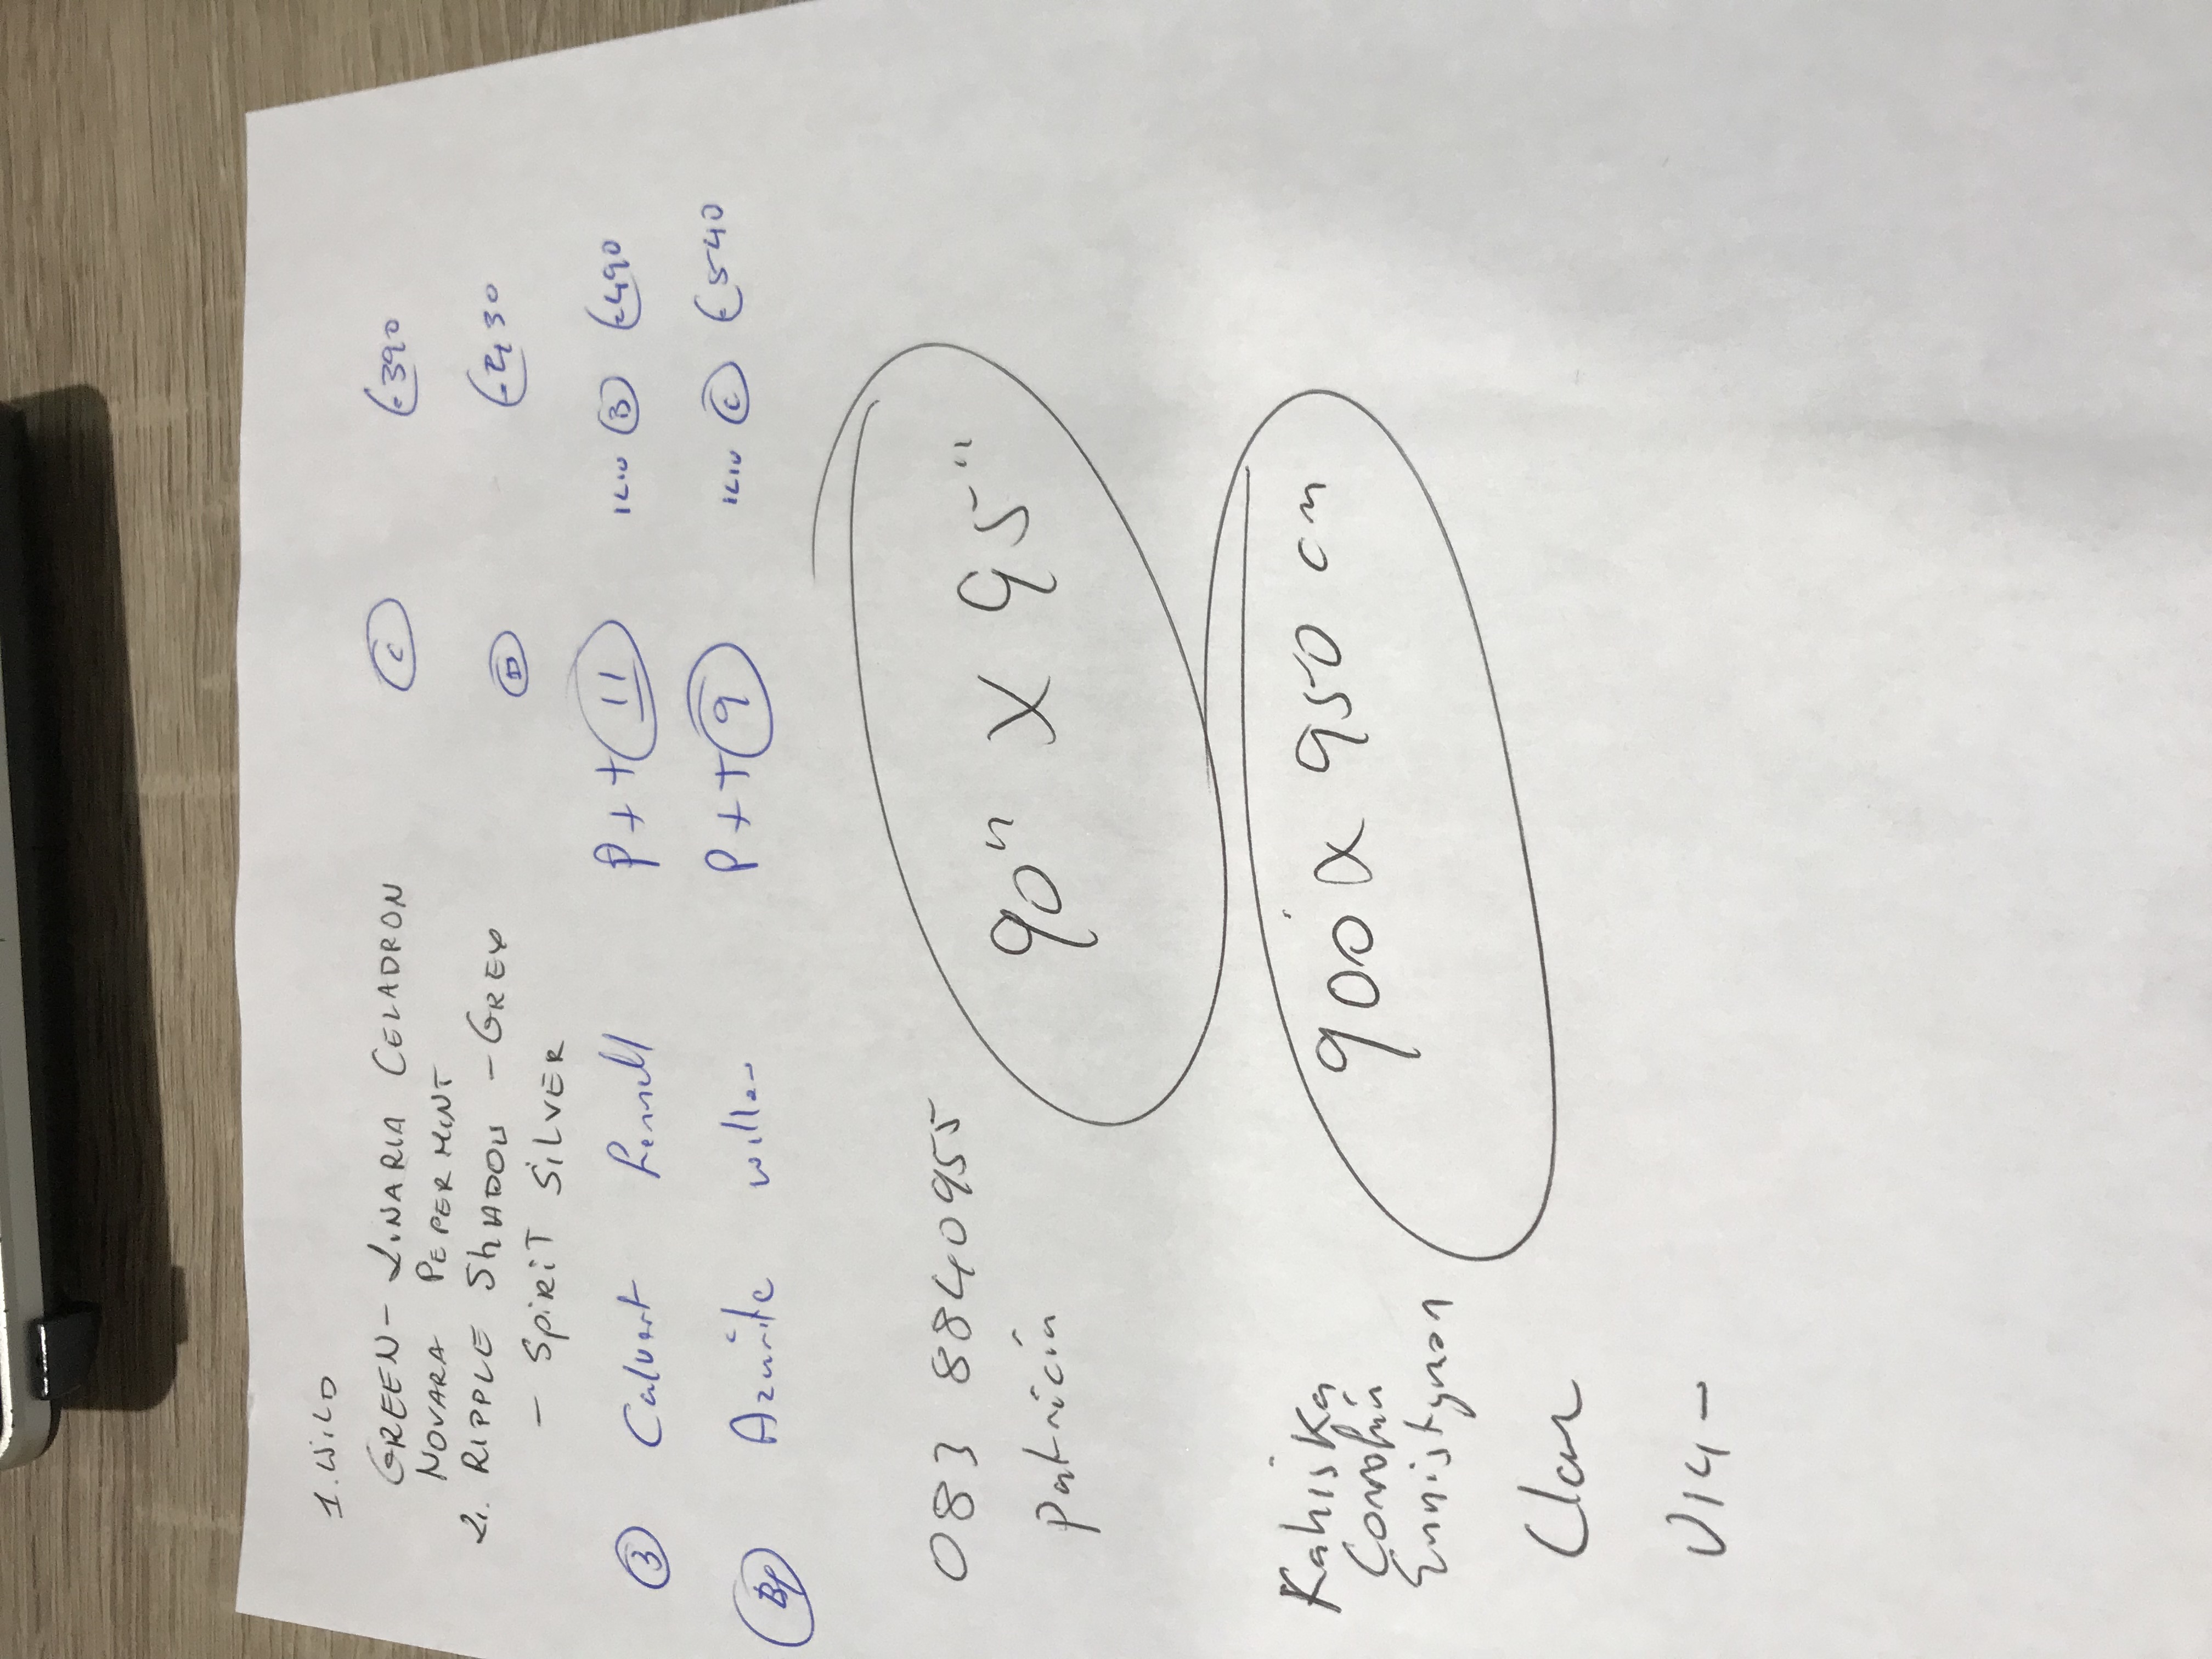 1. WILD
GREEN - LINARIA CELADRON C €390
NOVARA PEPERMINT
2. RIPPLE SHADOW - GREY B €430
- SPIRIT SILVER
3 Calvert P++ 11 B €490
Azurite willow P++ 9 C €540
083 8840955
Patricia
90" X 95"
Kahiska
Corofin
Ennistymon
900 X 950 cm
Clare
V14 -